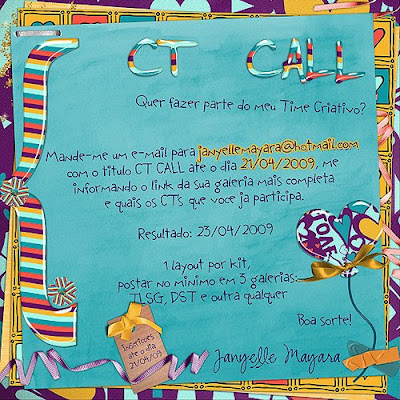 CT CALL
Quer fazer parte do meu Time Criativo?
Mande-me um e-mail para janyellemayara@hotmail.com
com o titulo CT CALL ate o dia 21/04/2009, me
informando o link da sua galeria mais completa
e quais os CTs que voce ja participa.
Resultado: 23/04/2009
1 layout por kit,
postar no minimo em 3 galerias:
TLSG, DST e outra qualquer
Boa sorte!
Janyelle Mayara
Inscricoes
ate o dia
21/04/09